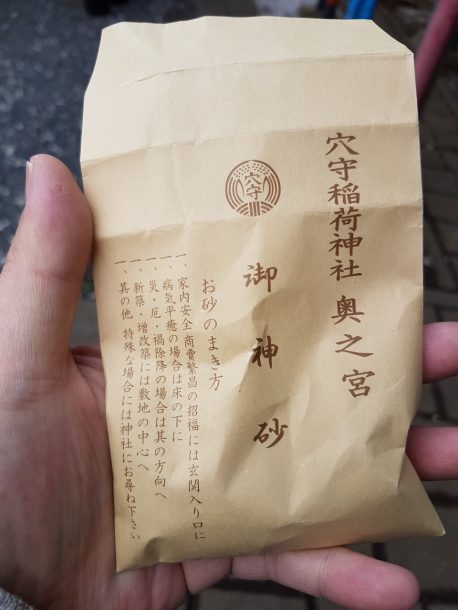 穴守稲荷神社 奥之宮
穴守
御神砂
お砂のまき方
一、家内安全 商賣繁昌の招福には玄関入り口に
一、病気平癒の場合は床の下に
一、災・厄・禍除降の場合は其の方向へ
一、新築・増改築には敷地の中心へ
一、其の他 特殊な場合には神社にお尋ね下さい